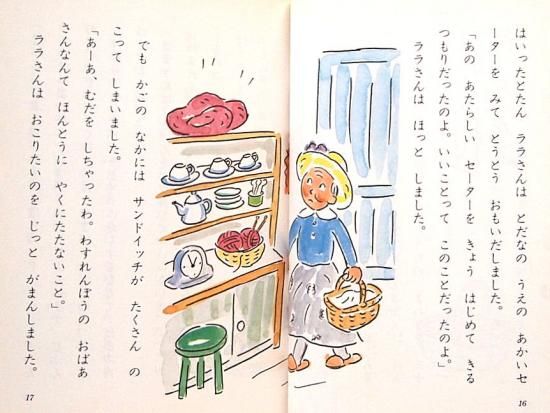 はいったとたん ララさんは とだなの うえの あかいセ
ーターを みて とうとう おもいだしました。
「あの あたらしい セーターを きょう はじめて きる
つもりだったのよ。いいことって このことだったのよ。」
ララさんは ほっと しました。
16
でも かごの なかには サンドイッチが たくさん の
こって しまいました。
「あーあ、むだを しちゃったわ。わすれんぼうの おばあ
さんなんて ほんとうに やくにたたないこと。」
ララさんは おこりたいのを じっと がまんしました。
17